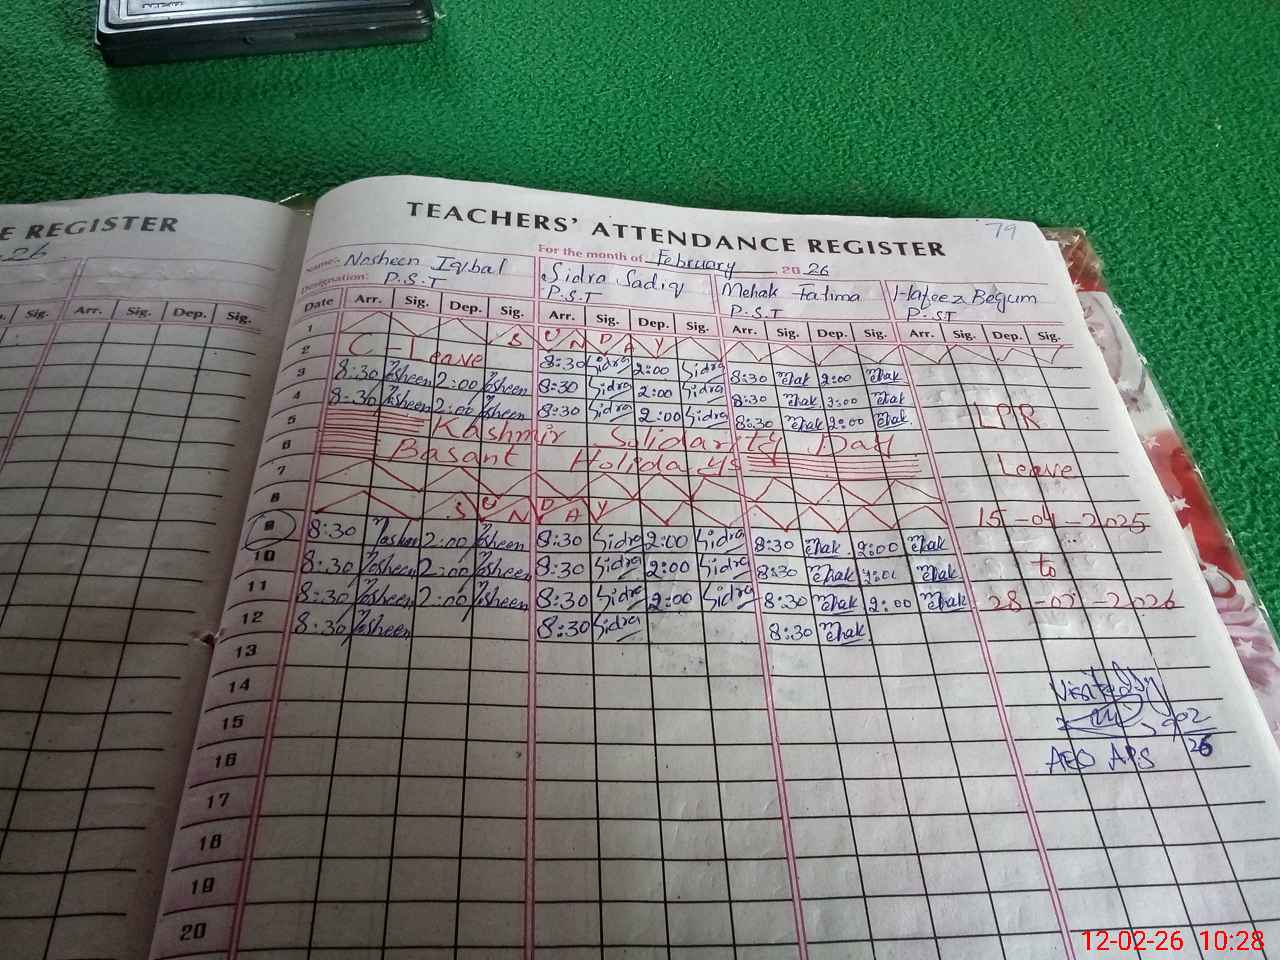 E REGISTER
26
Sig. Arr. Dep. Sig.
79
TEACHERS' ATTENDANCE REGISTER
For the month of February 2026
Name:- Nosheen Iqbal Sidra Sadiq Mehak Fatima Hafeez Begum
Designation: P.S.T P.S.T P.S.T P.S.T
Date Arr. Sig. Dep. Sig. Arr. Sig. Dep. Sig. Arr. Sig. Dep. Sig. Arr. Sig. Dep. Sig.
1 SUNDAY
2 C-Leave 8:30 Sidra 2:00 Sidra 8:30 Mehak 2:00 Mehak
3 8:30 Nosheen 2:00 Nosheen 8:30 Sidra 2:00 Sidra 8:30 Mehak 2:00 Mehak
4 8:30 Nosheen 2:00 Nosheen 8:30 Sidra 2:00 Sidra 8:30 Mehak 2:00 Mehak LPR
5 Kashmir Solidarity Day
6 Basant Holidays Leave
7
8 SUNDAY 15-04-2025
9 8:30 Nosheen 2:00 Nosheen 8:30 Sidra 2:00 Sidra 8:30 Mehak 2:00 Mehak
10 8:30 Nosheen 2:00 Nosheen 8:30 Sidra 2:00 Sidra 8:30 Mehak 2:00 Mehak to
11 8:30 Nosheen 2:00 Nosheen 8:30 Sidra 2:00 Sidra 8:30 Mehak 2:00 Mehak 28-02-2026
12 8:30 Nosheen 8:30 Sidra 8:30 Mehak
13
14 Visited by
15
16 AEO APS 26
17
18
19
20
12-02-26 10:28